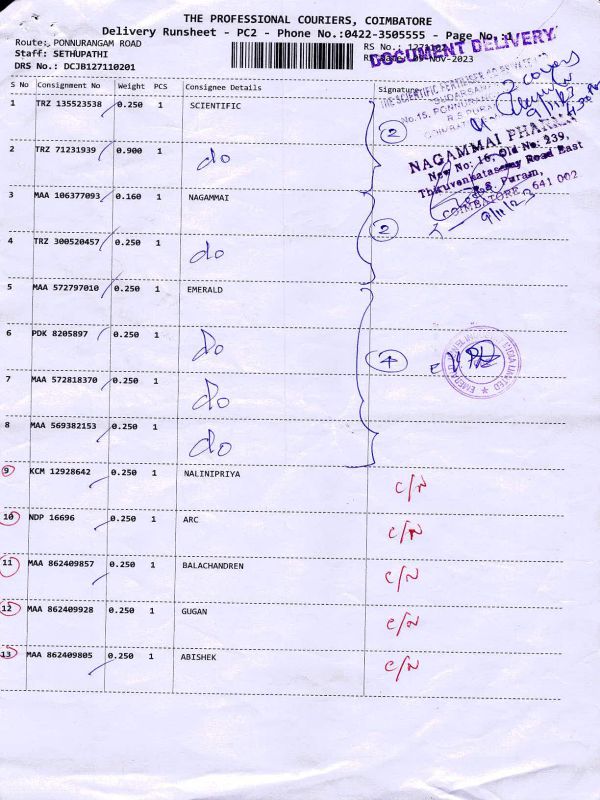 THE PROFESSIONAL COURIERS, COIMBATORE
Delivery Runsheet - PC2 - Phone No.:0422-3505555 - Page No.:1
Route: PONNURANGAM ROAD
Staff: SETHUPATHI
DRS No.: DCJB127110201
RS No.:
-Nov-2023
DOCUMENT DELIVERY
S No Consignment No Weight PCS Consignee Details Signature
1 TRZ 135523538 0.250 1 SCIENTIFIC
2
2 covers
9/11/23
2 TRZ 71231939 0.900 1 do
NAGAMMAI PHARMA
New No: 16, Old No: 239,
Thiruvenkatasamy Road East
R.S. Puram,
COIMBATORE - 641 002
9/11/23
3 MAA 106377093 0.160 1 NAGAMMAI
2
4 TRZ 300520457 0.250 1 do
5 MAA 572797010 0.250 1 EMERALD
6 PDK 8205897 0.250 1 Do
4
7 MAA 572818370 0.250 1 do
8 MAA 569382153 0.250 1 do
9 KCM 12928642 0.250 1 NALINIPRIYA C/N
10 NDP 16696 0.250 1 ARC C/N
11 MAA 862409857 0.250 1 BALACHANDREN C/N
12 MAA 862409928 0.250 1 GUGAN C/N
13 MAA 862409805 0.250 1 ABISHEK C/N